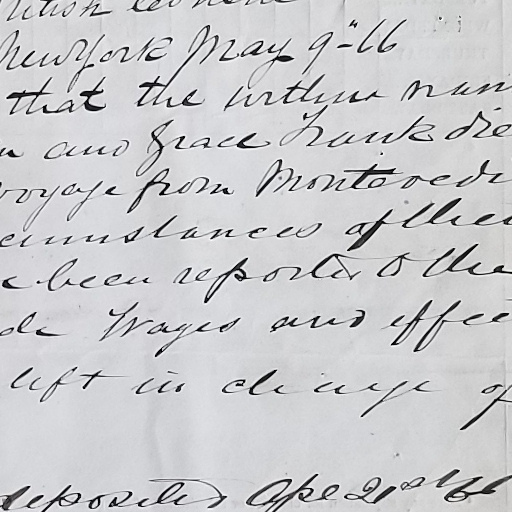 British Consul
New York May 9" 66
that the within nam
n and Grace Frank die
voyage from Montevedi
cumstances of their
e been reported to the
de Wages and effec
left in charge of
deposited Apl 21st 66